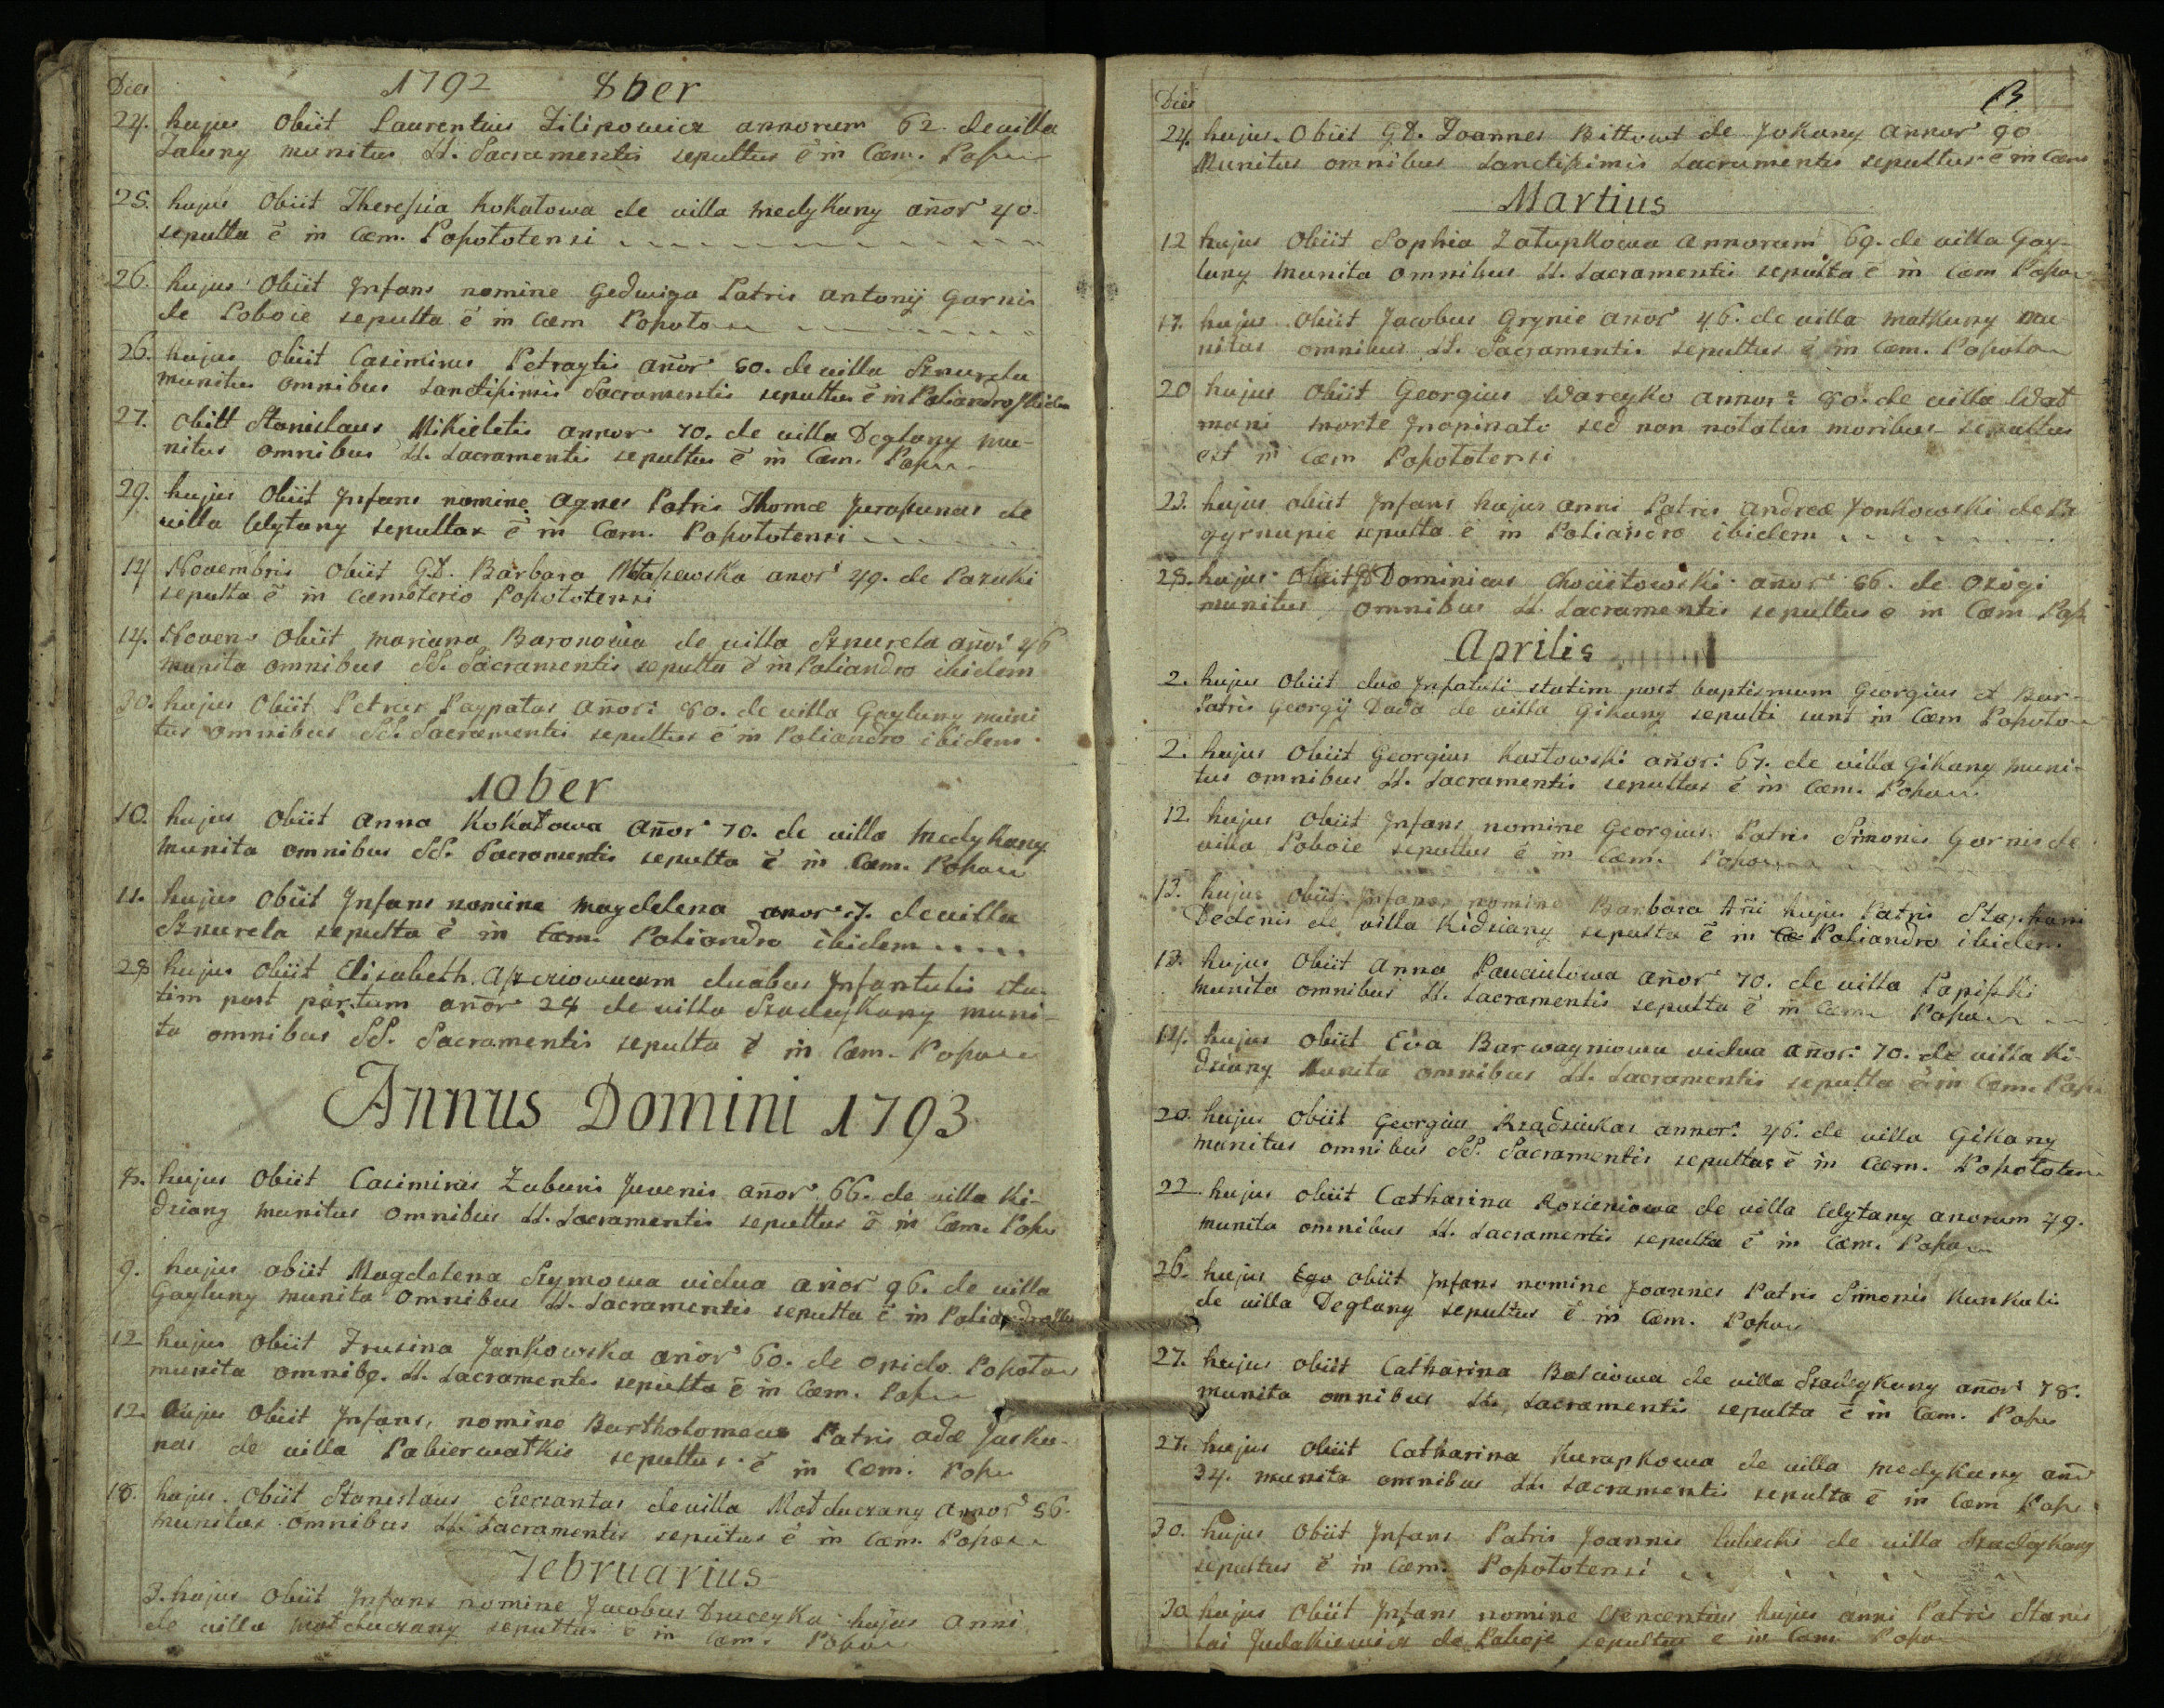 Dies 1792 8ber
24. hujus Obiit Laurentius Filipowicz annorum 62 de villa
Zaluny munitus SS. Sacramentis sepultus ē in Cœm. Popo
25. hujus Obiit Theresia Kokatowa de villa Medykany anor 40.
sepulta ē in Cœm. Popototensi
26. hujus Obiit Infans nomine Gedwiga Patris Antonij Garnis
de Poboie sepulta ē in Cœm Popoto
26. hujus Obiit Casimirus Petraytis anor 80. de villa Sznurela
munitus omnibus Sanctissimis Sacramentis sepultus ē in Poliandro ibidem
27. Obiit Stanislaus Mikieletis annor 70. de villa Deglany mu-
nitus omnibus SS. Sacramentis sepultus ē in Cœm. Popo
29. hujus Obiit Infans nomine Agnes Patris Thomæ Jurapunas de
villa Wytany sepulta ē in Cœm. Popototensi
14 Novembris Obiit G.D. Barbara anor 49. de Pazuki
sepulta ē in Cœmeterio Popototensi
14. Novem Obiit Mariana Baronowa de villa Sznurela anor 46
munita omnibus SS. Sacramentis sepulta ē in Poliandro ibidem
30. hujus Obiit Petrus Paypatas Anor: 80. de villa Gayluny muni
tus omnibus SS. Sacramentis sepultus ē in Poliandro ibidem
10ber
10. hujus Obiit Anna Kokatowa Anor 70. de villa Medykany
munita omnibus SS. Sacramentis sepulta ē in Cœm. Popo
11. hujus Obiit Infans nomine Magdelena anor 7. de villa
Sznurela sepulta ē in Cœm. Poliandro ibidem
28 hujus Obiit Elisabeth cum duabus Infantulis sta-
tim post partum anor 24 de villa Szadeykany muni-
ta omnibus SS. Sacramentis sepulta ē in Cœm. Popo
Annus Domini 1793
7. hujus Obiit Casimirus Zuburis Juvenis anor 66. de villa Ki-
dziany munitus omnibus SS. Sacramentis sepultus ē in Cœm. Popo
9. hujus obiit Magdelena Szymowa vidua anor 96. de villa
Gayluny munita omnibus SS. Sacramentis sepulta ē in Poliandro
12 hujus Obiit Frusina Jankowska anor 60. de Opido Popoto
munita omnibq. SS. Sacramentis sepulta ē in Cœm. Popo
12. hujus Obiit Infans, nomine Bartholomeus Patris Adæ Jasku-
nas de villa Pabierwatkie sepultus ē in Cœm. Popo
18. hujus Obiit Stanislaus Szerantas de villa Motduczany Annor 86.
munitus omnibus SS. Sacramentis sepultus ē in Cœm. Popo
Februarius
3. hujus Obiit Infans nomine Jacobus Druceyka hujus Anni
de villa Motduczany sepultus ē in Cœm. Popo
Dies 13
24. hujus Obiit G.D. Joannes Bittowt de Jokany Annor 90
Munitus omnibus Sanctissimis Sacramentis sepultus ē in Cœm
Martius
12 hujus Obiit Sophia Zatupkowa Annorum 69. de villa Gay-
luny munita omnibus SS. Sacramentis sepulta ē in Cœm Popo
17. hujus Obiit Jacobus Grynie anor 46. de villa Matkuny mu
nitus omnibus SS. Sacramentis sepultus ē in Cœm. Popoto
20 hujus Obiit Georgius Wareyko annor: 80. de villa Wat
mani morte Inopinata sed non notatus moribus sepultus
est in Cœm Popototensi
23. hujus obiit Infans hujus anni Patris Andreæ Jonkowski de
gyrnupie sepulta ē in Poliandro ibidem
28. hujus Obiit GD Dominicus Chocietowski anor 86. de Ozogi
munitus omnibus SS. Sacramentis sepultus e in Cœm Popo
Aprilis
2. hujus Obiit duo Infatuli statim post baptismum Georgius et Bar-
Patris Georgij Dada de villa Gikany sepulti sunt in Cœm Popoto
2. hujus Obiit Georgius Kastowski anor: 67. de villa Gikany muni-
tus omnibus SS. Sacramentis sepultus ē in Cœm. Popo
12. hujus Obiit Infans nomine Georgius Patris Simonis Garnis de
villa Poboie sepultus ē in Cœm. Popo
13. hujus Obiit Infans nomine Barbara Ani hujus Patris Stephani
Dedenis de villa Kidziany sepulta ē in Cœ Poliandro ibidem
13. hujus Obiit Anna Pauciutowa anor 70. de villa Papiszki
munita omnibus SS. Sacramentis sepulta ē in Cœm Popo
14. hujus Obiit Eva Barwayniowa vidua anor: 70. de villa Ki-
dziany Munita omnibus SS. Sacramentis sepulta ē in Cœm. Popo
20. hujus Obiit Georgius annor: 46. de villa Gikany
munitus omnibus SS. Sacramentis sepultus ē in Cœm. Popototen
22 hujus obiit Catharina Rozieniowa de villa Wytany anorum 49.
munita omnibus SS. Sacramentis sepulta ē in Cœm. Popo
26. hujus Ego obiit Infans nomine Joannes Patris Simonis Kunkulis
de villa Deglany sepultus ē in Cœm. Popo
27. hujus obiit Catharina Balciowa de villa Szadeykany anor 78.
munita omnibus SS. Sacramentis sepulta ē in Cœm. Popo
27. hujus Obiit Catharina Kurapkowa de villa Medykany anor
34. munita omnibus SS. Sacramentis sepulta ē in Cœm Popo
30. hujus Obiit Infans Patris Joannis Kubecki de villa Szadeykany
sepultus ē in Cœm. Popototensi
30 hujus Obiit Infans nomine Vencentius hujus anni Patris Stanis
lai Judakiewicz de Paboje sepultus e in Cœm Popo